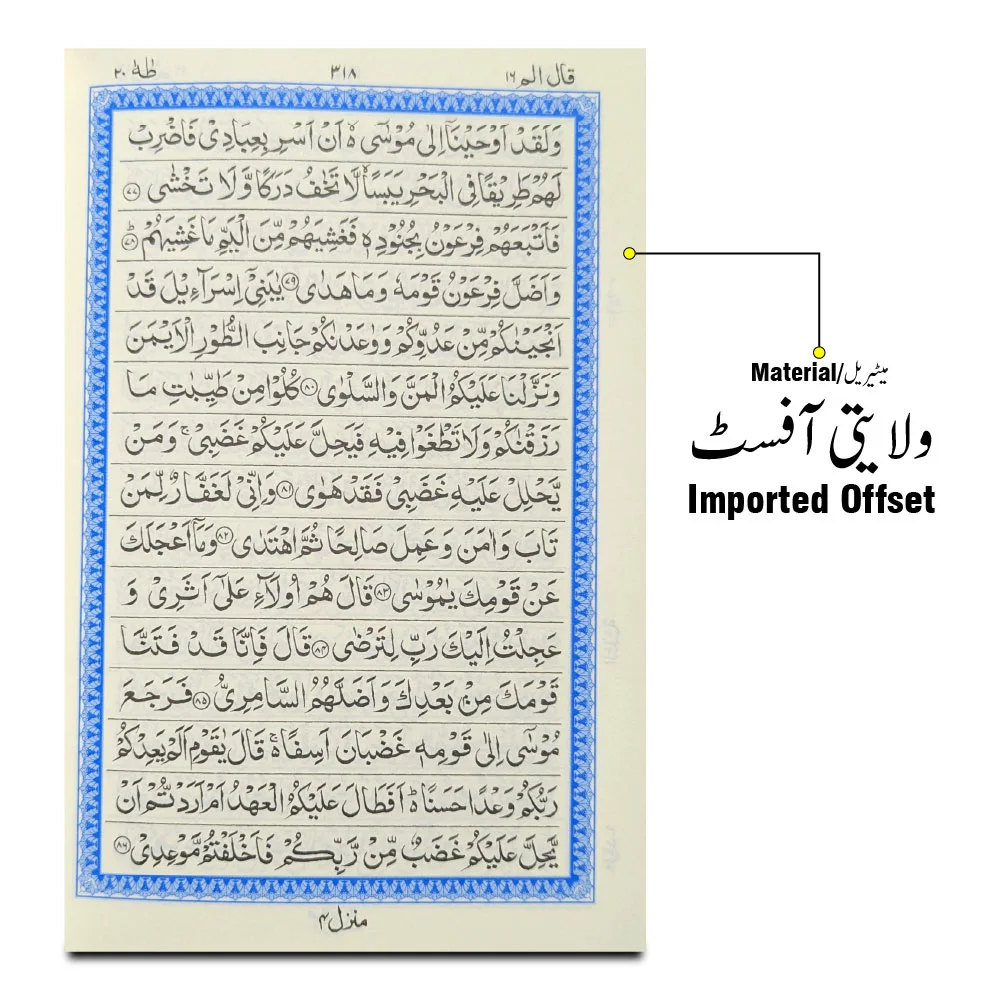 قال الم ١٦ ٣١٨ طٰهٰ ٢٠
وَلَقَدْ اَوْحَيْنَاۤ اِلٰى مُوْسٰۤى ۙ۬ اَنْ اَسْرِ بِعِبَادِىْ فَاضْرِبْ
لَهُمْ طَرِيْقًا فِى الْبَحْرِ يَبَسًا ۙ لَّا تَخٰفُ دَرَكًا وَّلَا تَخْشٰى ٧٧
فَاَتْبَعَهُمْ فِرْعَوْنُ بِجُنُوْدِهٖ فَغَشِيَهُمْ مِّنَ الْيَمِّ مَا غَشِيَهُمْ ؕ ٧٨
وَاَضَلَّ فِرْعَوْنُ قَوْمَهٗ وَمَا هَدٰى ٧٩ يٰبَنِىْۤ اِسْرَآءِيْلَ قَدْ
اَنْجَيْنٰكُمْ مِّنْ عَدُوِّكُمْ وَوٰعَدْنٰكُمْ جَانِبَ الطُّوْرِ الْاَيْمَنَ
وَنَزَّلْنَا عَلَيْكُمُ الْمَنَّ وَالسَّلْوٰى ٨٠ كُلُوْا مِنْ طَيِّبٰتِ مَا
رَزَقْنٰكُمْ وَلَا تَطْغَوْا فِيْهِ فَيَحِلَّ عَلَيْكُمْ غَضَبِىْ ۚ وَمَنْ
يَّحْلِلْ عَلَيْهِ غَضَبِىْ فَقَدْ هَوٰى ٨١ وَاِنِّىْ لَغَفَّارٌ لِّمَنْ
تَابَ وَاٰمَنَ وَعَمِلَ صَالِحًا ثُمَّ اهْتَدٰى ٨٢ وَمَاۤ اَعْجَلَكَ
عَنْ قَوْمِكَ يٰمُوْسٰى ٨٣ قَالَ هُمْ اُولَآءِ عَلٰٓى اَثَرِىْ وَ
عَجِلْتُ اِلَيْكَ رَبِّ لِتَرْضٰى ٨٤ قَالَ فَاِنَّا قَدْ فَتَنَّا
قَوْمَكَ مِنْۢ بَعْدِكَ وَاَضَلَّهُمُ السَّامِرِىُّ ٨٥ فَرَجَعَ
مُوْسٰۤى اِلٰى قَوْمِهٖ غَضْبَانَ اَسِفًا ۬ۚ قَالَ يٰقَوْمِ اَلَمْ يَعِدْكُمْ
رَبُّكُمْ وَعْدًا حَسَنًا ۬ؕ اَفَطَالَ عَلَيْكُمُ الْعَهْدُ اَمْ اَرَدْتُّمْ اَنْ
يَّحِلَّ عَلَيْكُمْ غَضَبٌ مِّنْ رَّبِّكُمْ فَاَخْلَفْتُمْ مَّوْعِدِىْ ٨٦
منزل ٤
Material/میٹیریل
ولایتی آفسٹ
Imported Offset